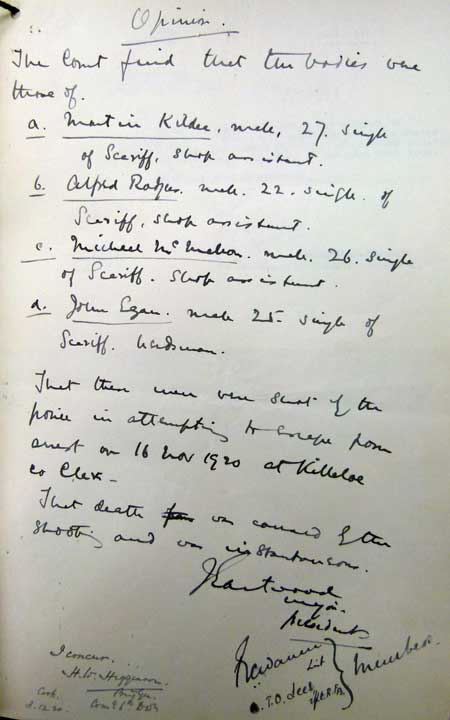 Opinion.
The Court find that the bodies were
those of.
a. Martin Kildea, male, 27. single
of Scariff, shop assistant.
b. Alfred Rodgers. male. 22. single. of
Scariff, shop assistant.
c. Michael McMahon. male. 26. single
of Scariff. Shop assistant.
d. John Egan. male 25. single of
Scariff. herdsman.
That these men were shot by the
police in attempting to escape from
arrest on 16 Nov 1920 at Killaloe
co Clare -
That death was caused by the
shooting and was instantaneous.
major.
President
Lt } Members.
I concur.
H.W. Higginson.
Cork
8.12.20.